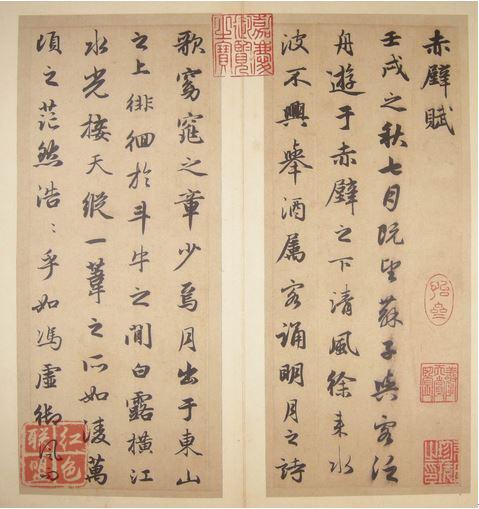 赤壁賦
壬戌之秋七月既望蘇子與客泛
舟遊于赤壁之下清風徐來水
波不興舉酒属客誦明月之詩
歌窈窕之章少焉月出于東山
之上徘徊於斗牛之間白露橫江
水光接天縱一葦之所如淩萬
頃之茫然浩〻乎如馮虛御風而
嘉慶御覽之寶
紅色聯盟